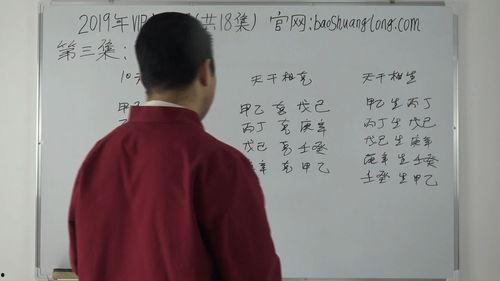 2019年VIP (共18集) 官网:baoshuanglong.com
第三集:
10天 天干相克 天干相生
甲乙 克 戊己 甲乙 生 丙丁
丙丁 克 庚辛 丙丁 生 戊己
戊己 克 壬癸 戊己 生 庚辛
庚辛 克 甲乙 庚辛 生 壬癸
壬癸 生 甲乙